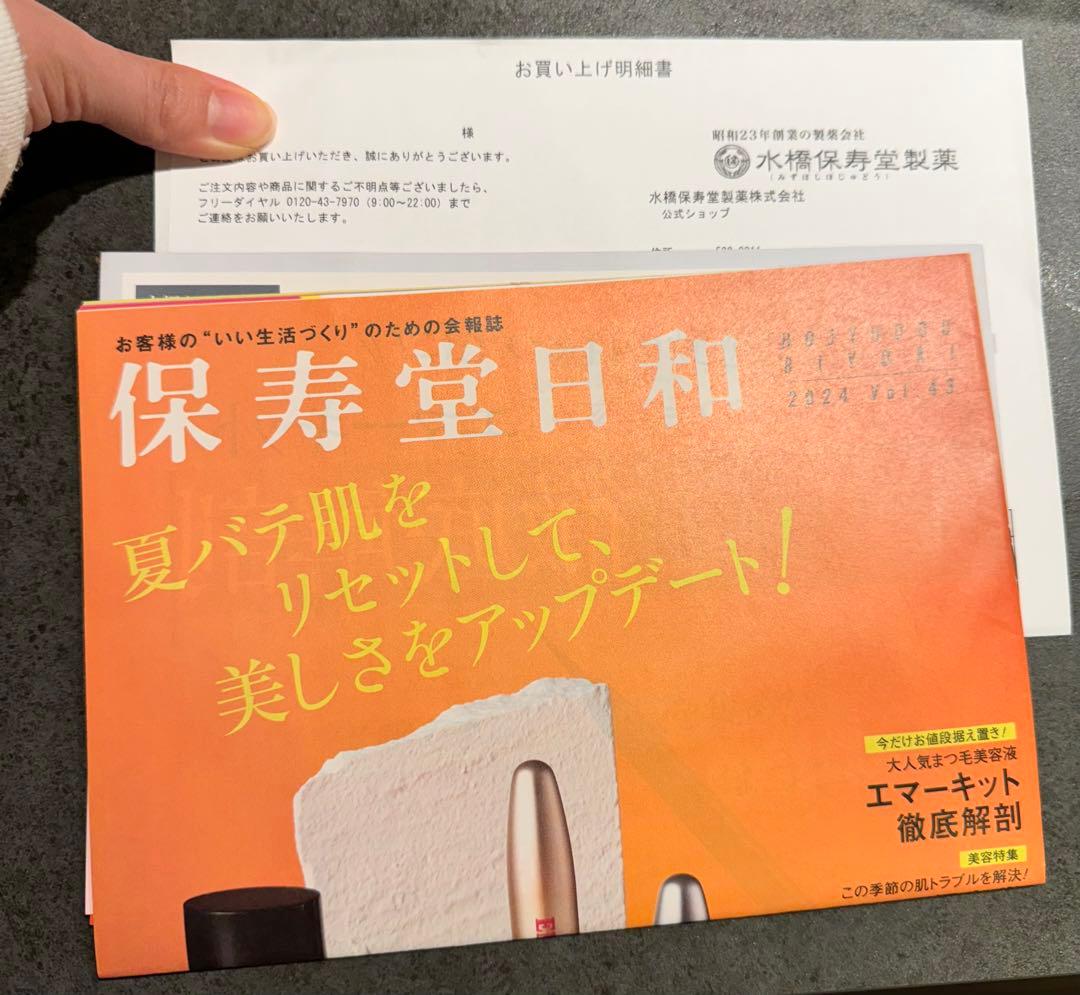 お買い上げ明細書
様
お買い上げいただき、誠にありがとうございます。
ご注文内容や商品に関するご不明点等ございましたら、
フリーダイヤル 0120-43-7970 (9:00~22:00) まで
ご連絡をお願いいたします。
昭和23年創業の製薬会社
水橋保寿堂製薬
(みずはしほじゅどう)
水橋保寿堂製薬株式会社
公式ショップ
お客様の“いい生活づくり”のための会報誌
保寿堂日和
HOJYUDOU
BIYORI
2024 Vol.43
夏バテ肌を
リセットして、
美しさをアップデート!
今だけお値段据え置き!
大人気まつ毛美容液
エマーキット
徹底解剖
美容特集
この季節の肌トラブルを解決!